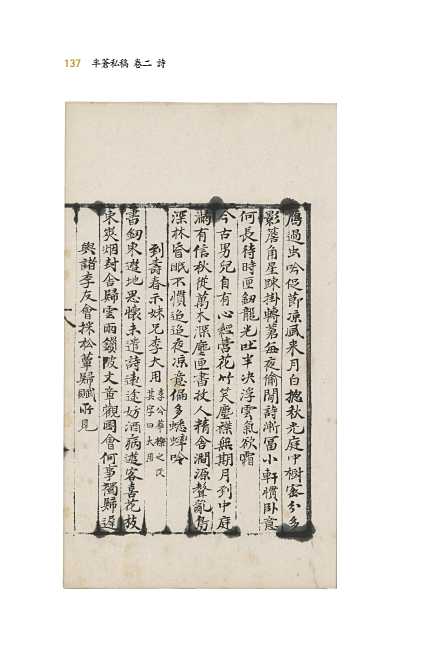 137 半蒼私稿 卷二 詩
鴈過虫吟促節凉風来月白揔秋光庭中樹密分多
影簷角星踈掛轉茗每夜偷閒詩漸冨小軒慣卧意
何長待時匣釰龍光吐半决浮雲氣欲霜
今古男兒自有心經營花竹笑塵襟無期月到中庭
滿有信秋從萬木深塵匣書故人精舍澗源聲亂
深林昏眠不慣追追夜凉意偏多蟋蟀吟
到壽春示妹兄李大用 李公華機之改其字曰大用
書釰東遊地思懷未道詩遠途妨酒病遊客喜花枝
東爽烟封舍歸雲雨鎖陂文章觀國會何事獨歸遲
與諸李友會採松蕈歸賦所見